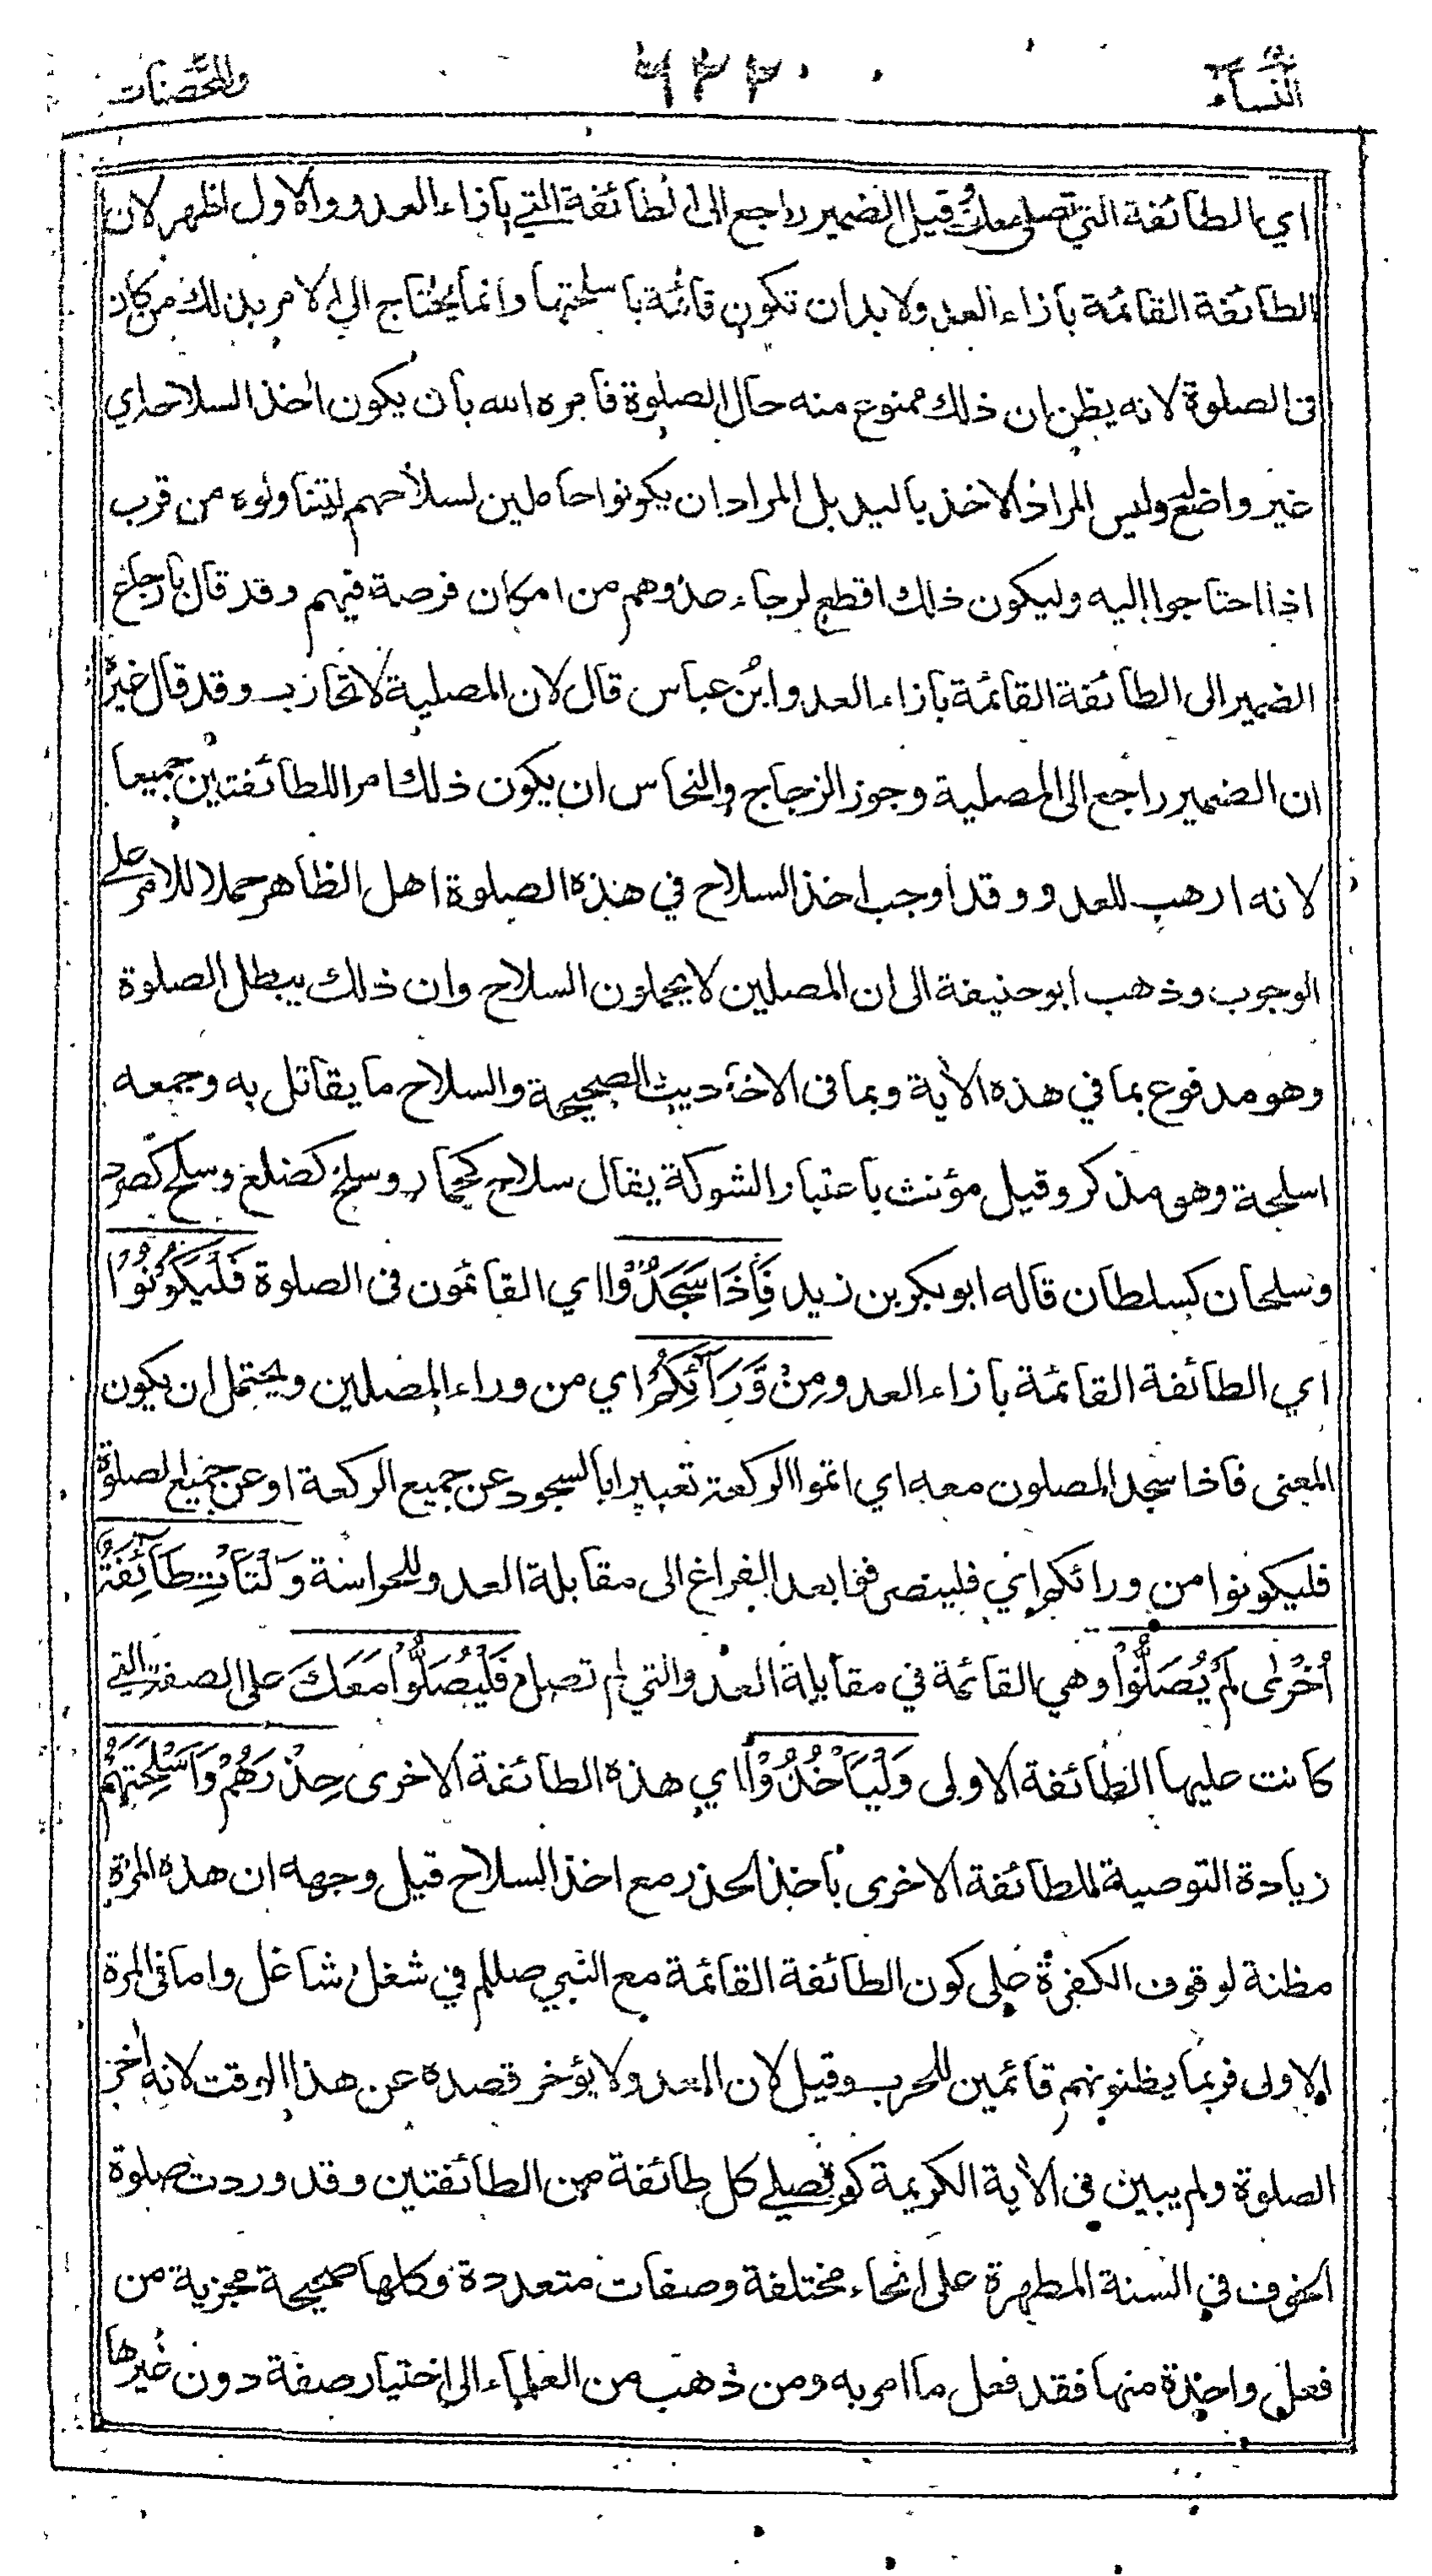 النساء ٦٣٣ والمحصنات
اي الطائفة التي تصلي معك وقيل الضمير راجع الى الطائفة التي بازاء العدو والاول اظهر لان
الطائفة القائمة بازاء العدو لا بد ان تكون قائمة باسلحتها وانما يحتاج الى الامر بذلك من كان
فى الصلوة لانه يظن ان ذلك ممنوع منه حال الصلوة فامره الله بان يكون اخذ السلاحه اي
غير واضع وليس المراد الاخذ باليد بل المراد ان يكونوا حاملين لسلاحهم ليتناولوه من قرب
اذا احتاجوا اليه وليكون ذلك اقطع لرجاء عدوهم من امكان فرصة فيهم وقد قال بارجاع
الضمير الى الطائفة القائمة بازاء العدو ابن عباس قال لان المصلية لا تحارب وقد قال غيره
ان الضمير راجع الى المصلية وجوز الزجاج والنحاس ان يكون ذلك امرا للطائفتين جميعا
لانه ارهب للعدو وقد اوجب اخذ السلاح في هذه الصلوة اهل الظاهر حملا للامر على
الوجوب وذهب ابو حنيفة الى ان المصلين لا يحملون السلاح وان ذلك يبطل الصلوة
وهو مدفوع بما في هذه الأية وبما فى الاحاديث الصحيحة والسلاح ما يقاتل به وجمعه
اسلحة وهو مذكر وقيل مؤنث باعتبار الشوكة يقال سلاح كحمار وسلح كضلع وسلح كصرد
وسلحان كسلطان قاله ابو بكر بن زيد فَاِذَا سَجَدُوْا اي القائمون فى الصلوة فَلْيَكُوْنُوْا
اي الطائفة القائمة بازاء العدو مِنْ وَّرَآئِكُمْ اي من وراء المصلين ويحتمل ان يكون
المعنى فاذا سجد المصلون معه اي اتموا الركعة تعبيرا بالسجود عن جميع الركعة او عن جميع الصلوة
فليكونوا من ورائكم اي فلينصرفوا بعد الفراغ الى مقابلة العدو للحراسة وَلْتَأْتِ طَآئِفَةٌ
اُخْرٰى لَمْ يُصَلُّوْا وهي القائمة في مقابلة العدو التي لم تصل فَلْيُصَلُّوْا مَعَكَ على الصفة التي
كانت عليها الطائفة الاولى وَلْيَأْخُذُوْا اي هذه الطائفة الاخرى حِذْرَهُمْ وَاَسْلِحَتَهُمْ
زيادة التوصية للطائفة الاخرى باخذ الحذر مع اخذ السلاح قيل وجهه ان هذه المرة
مظنة لوقوف الكفرة على كون الطائفة القائمة مع النبي صللم في شغل شاغل واما فى المرة
الاولى فربما يظنونهم قائمين للحرب وقيل لان العدو لا يؤخر قصده عن هذا الوقت لانه اخر
الصلوة ولم يبين فى الأية الكريمة كم تصلي كل طائفة من الطائفتين وقد وردت صلوة
الخوف في السنة المطهرة على انحاء مختلفة وصفات متعددة وكلها صحيحة مجزية من
فعل واحدة منها فقد فعل ما امر به ومن ذهب من العلماء الى اختيار صفة دون غيرها